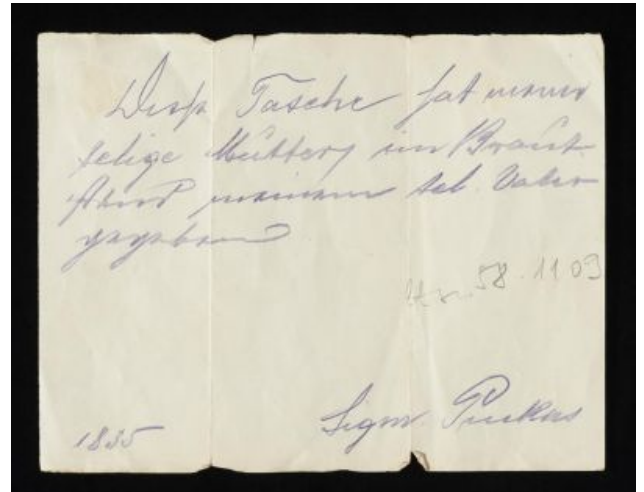 Diese Tasche hat meine
selige Mutter im Braut-
stand meinem sel. Vater
gegeben
58.1109
1835 Sigm. Pinkus